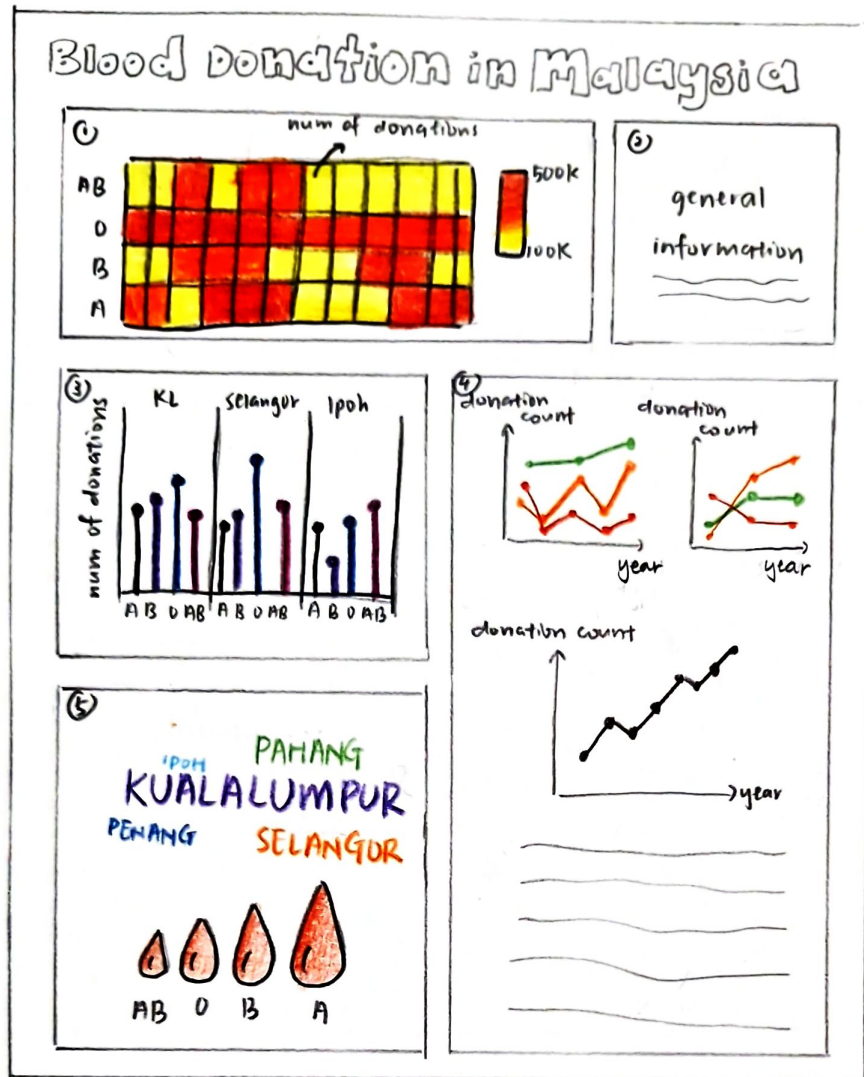 Blood Donation in Malaysia
①
num of donations
AB
O
B
A
500K
100K
②
general
information
③
num of donations
KL
selangor
Ipoh
A B O AB A B O AB A B O AB
④
donation
count
year
donation
count
year
donation count
year
⑤
IPOH
PAHANG
KUALALUMPUR
PENANG
SELANGOR
AB O B A